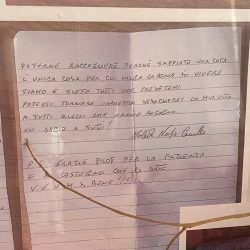 POTERNE RACCOGLIERE PERCHÉ SAPPIATE UNA COSA
L'UNICA COSA PER CUI VALGA LA PENA DI VIVERE
SIAMO E SIETE TUTTI VOI CREDETEMI
POTESSI TORNARE INDIETRO DEDICHEREI LA MIA VITA
A TUTTI QUELLI CHE HANNO BISOGNO.
UN BACIO A TUTTI!
P.S. GRAZIE PROF PER LA PAZIENZA
E IL SOSTEGNO CHE CI DATE
V.V.U.M.D. BENE!!!